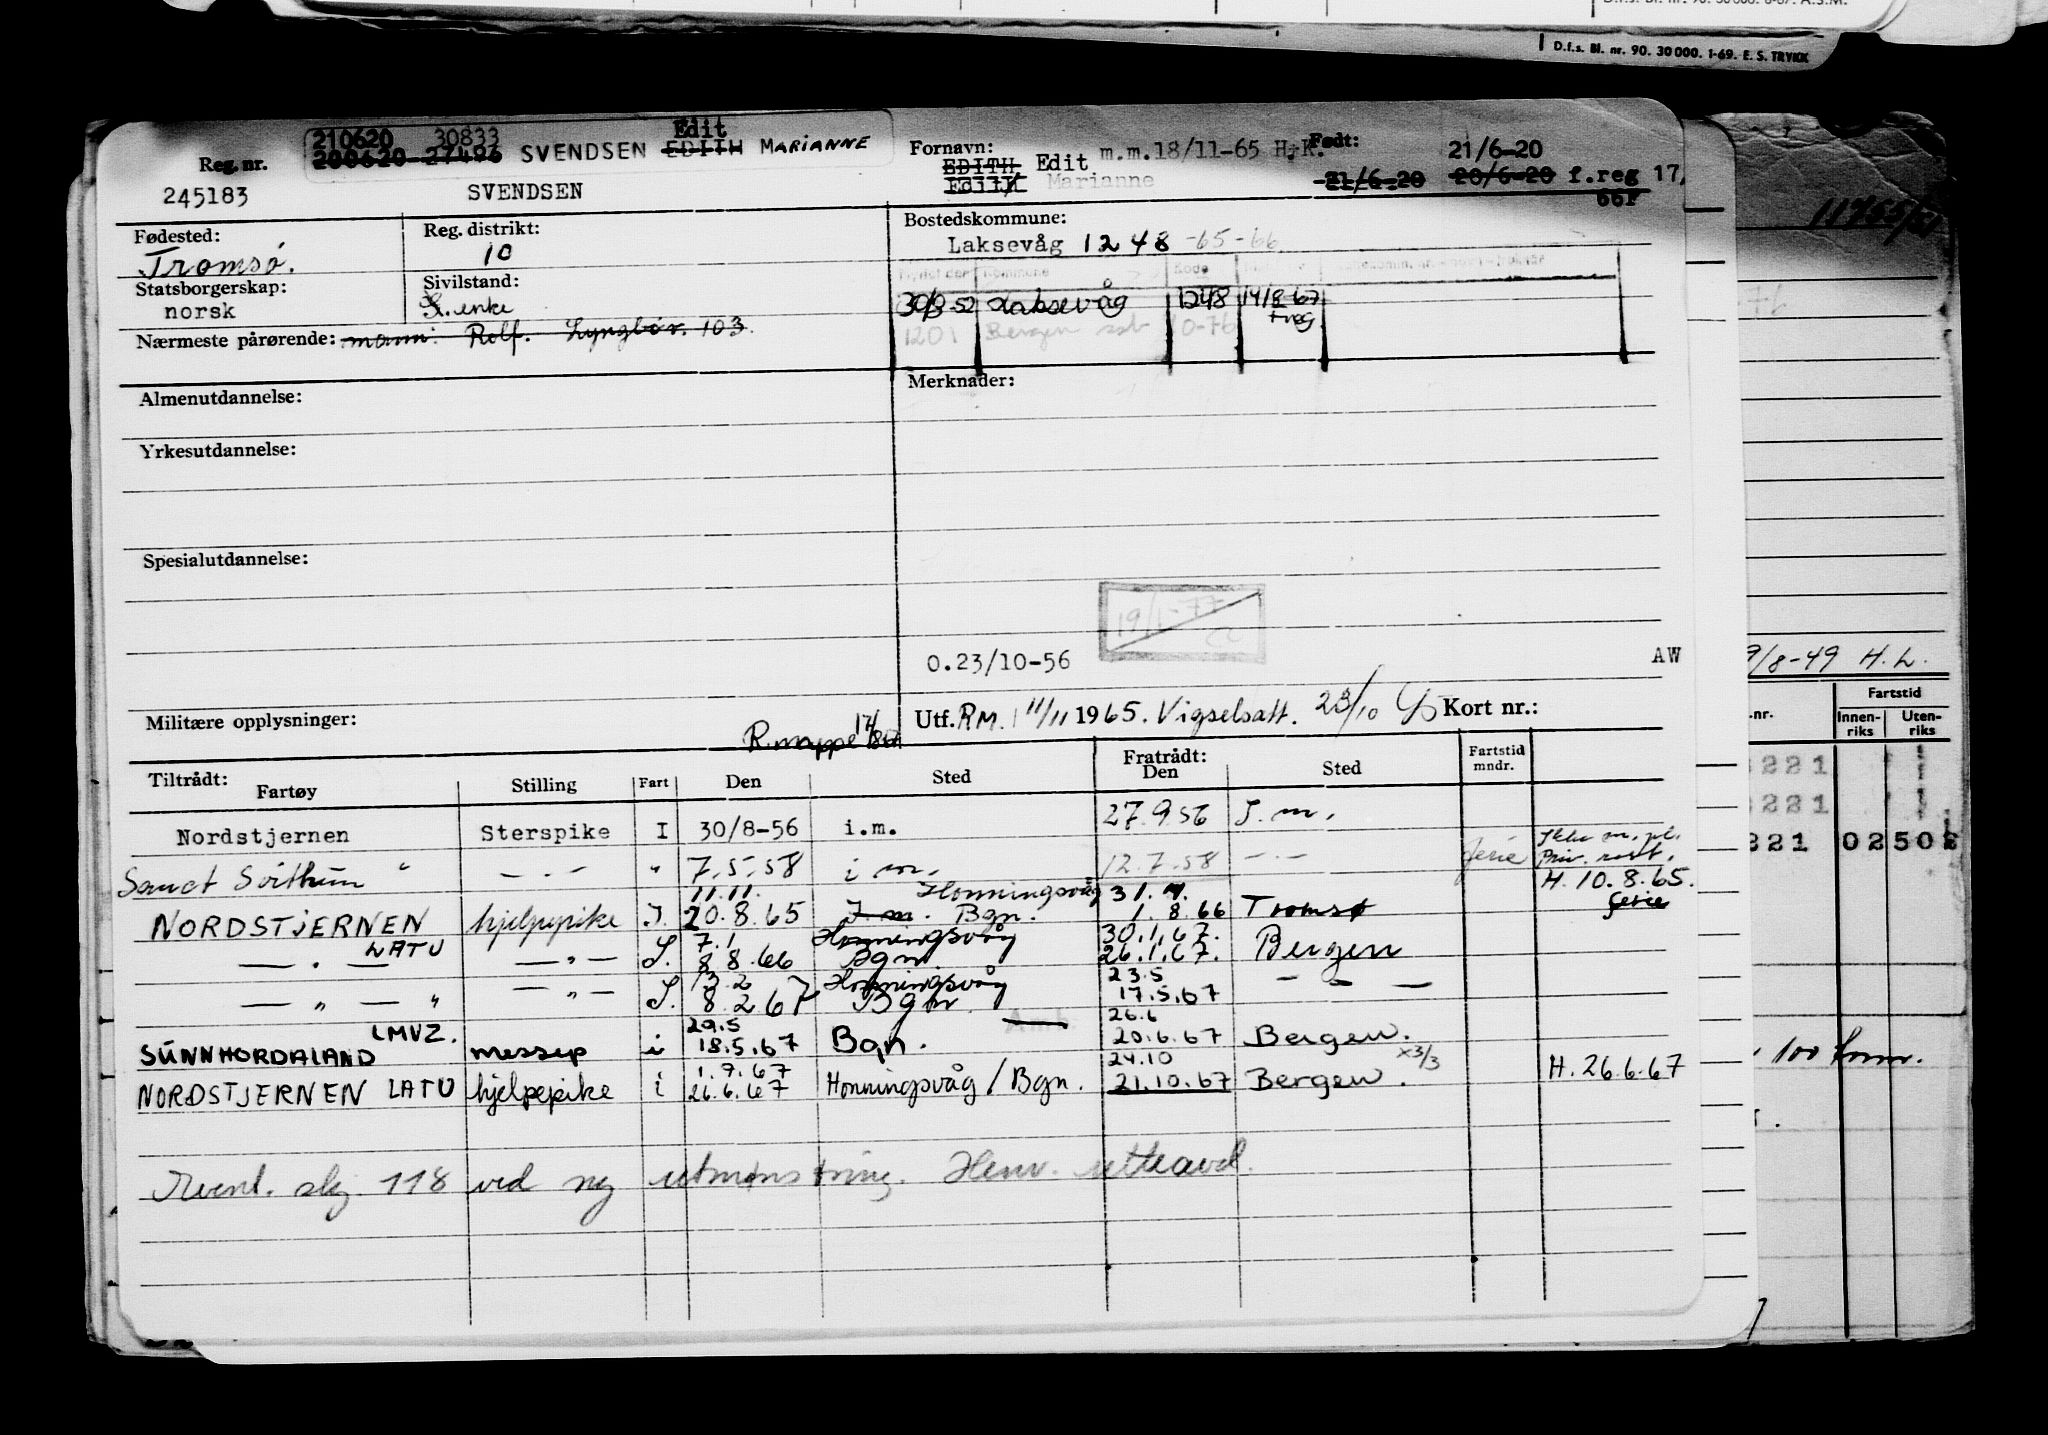 D.f.s. Bl. nr. 90. 30 000. 1-69. E. S. TRYKK
210620 30833 Edit
Reg. nr. 200620-27496 SVENDSEN EDITH MARIANNE
Fornavn: EDITH Edit m.m.18/11-65 H.K. Født: 21/6-20
245183 SVENDSEN Edith Marianne 21/6-20 20/6-20 f.reg 17,
66F
Fødested: Reg. distrikt: Bostedskommune:
Tromsø. 10 Laksevåg 1248 -65-66
Statsborgerskap: Sivilstand:
norsk enke 30/9-52 Laksevåg 1248 14/8-67
1201 Bergen 0-76
Nærmeste pårørende: mann: Rolf. Lyngbøv. 103.
Almenutdannelse: Merknader:
Yrkesutdannelse:
Spesialutdannelse:
19/1-77
0.23/10-56 AW
Militære opplysninger: R.mappe 17/ Utf. RM. 11/11 1965. Vigselsatt. 23/10 Kort nr.:
Tiltrådt: Fratrådt: Fartstid mndr.
Fartøy Stilling Fart Den Sted Den Sted
Nordstjernen Sterspike I 30/8-56 i.m. 27.9.56 I.m.
Sanct Svithun " — " — " 7.5.58 i m. 12.7.58 — " — ferie
11.11. Honningsvåg 31. H. 10.8.65.
NORDSTJERNEN hjelpepike I. 20.8.65 I.m. Bgn. 1.8.66 Tromsø ferie
LATU 7.1 Honningsvåg 30.1.67.
— " — — " — I. 8.8.66 Bgn 26.1.67. Bergen
13.2 Honningsvåg 23.5
— " — " — " — I. 8.2.67 Bgn. 17.5.67 — " —
LMVZ. 29.5 26.6
SUNNHORDALAND messep i 18.5.67 Bgn. 20.6.67 Bergen.
1.7.67 24.10 x3/3
NORDSTJERNEN LATU hjelpepike i 26.6.67 Honningsvåg / Bgn. 21.10.67 Bergen. H. 26.6.67
skj. 118 ved ny utmønstring. Henv.
11755/
9/8-49 H.L.
Fartstid
.nr. Innen-riks Uten-riks
221
221
221 02502
100